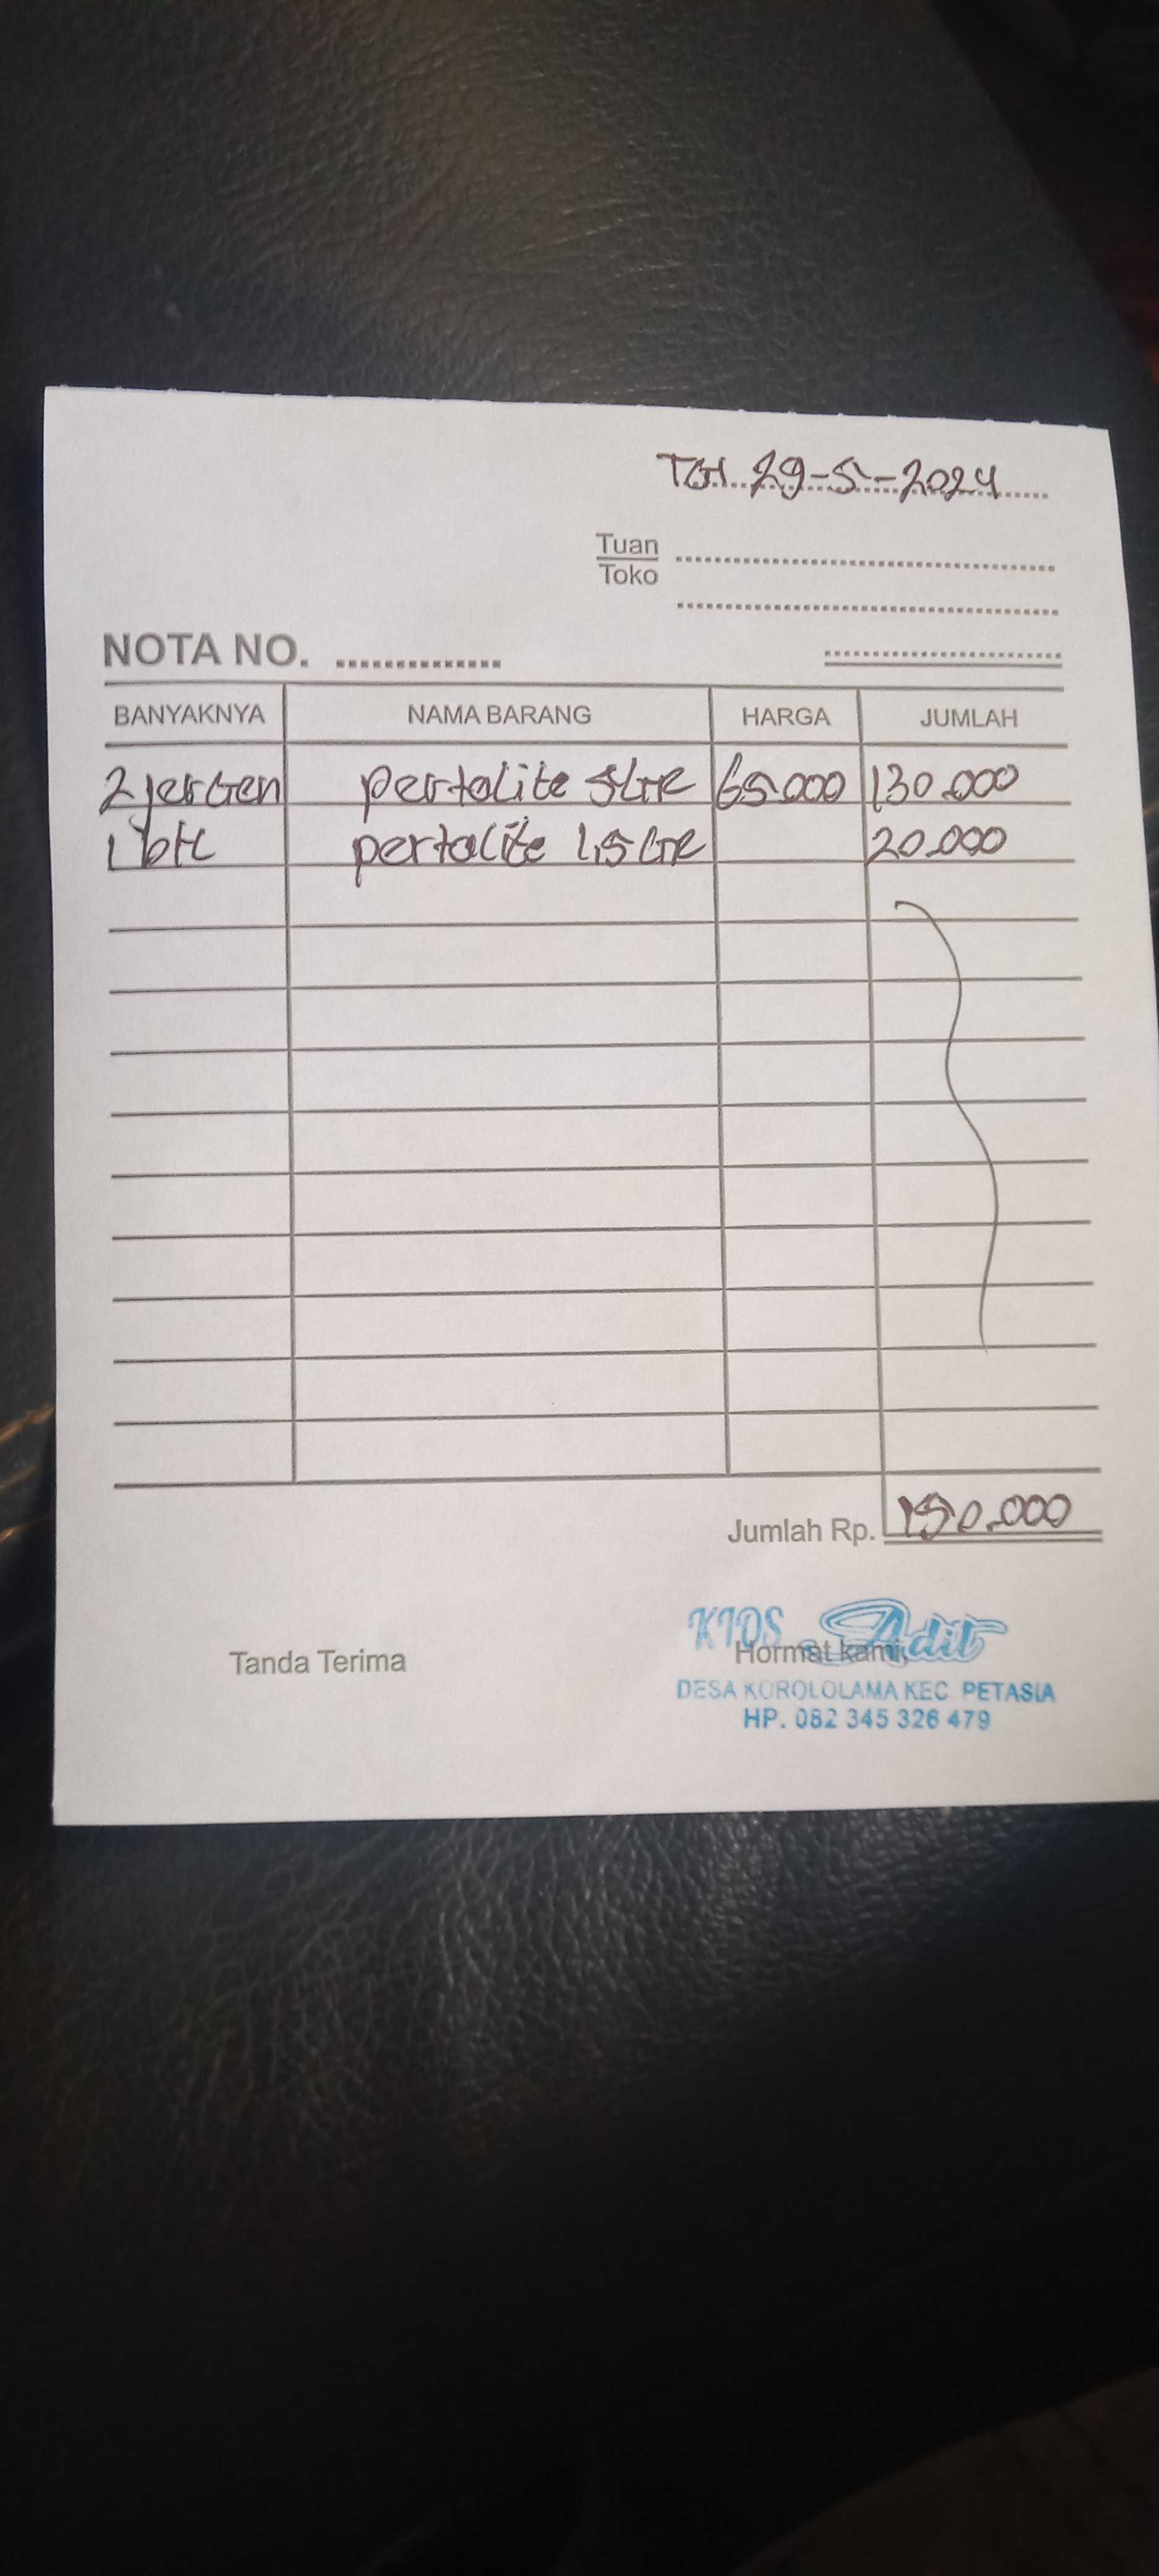 TGL 29-5-2024
Tuan
Toko
NOTA NO.
BANYAKNYA NAMA BARANG HARGA JUMLAH
2 jerGen pertalite 5 LTR 65.000 130.000
1 btl pertalite 1,5 LTR 20.000
Jumlah Rp. 150.000
KIOS Adit
Tanda Terima Hormat kami,
DESA KOROLOLAMA KEC. PETASIA
HP. 082 345 326 479